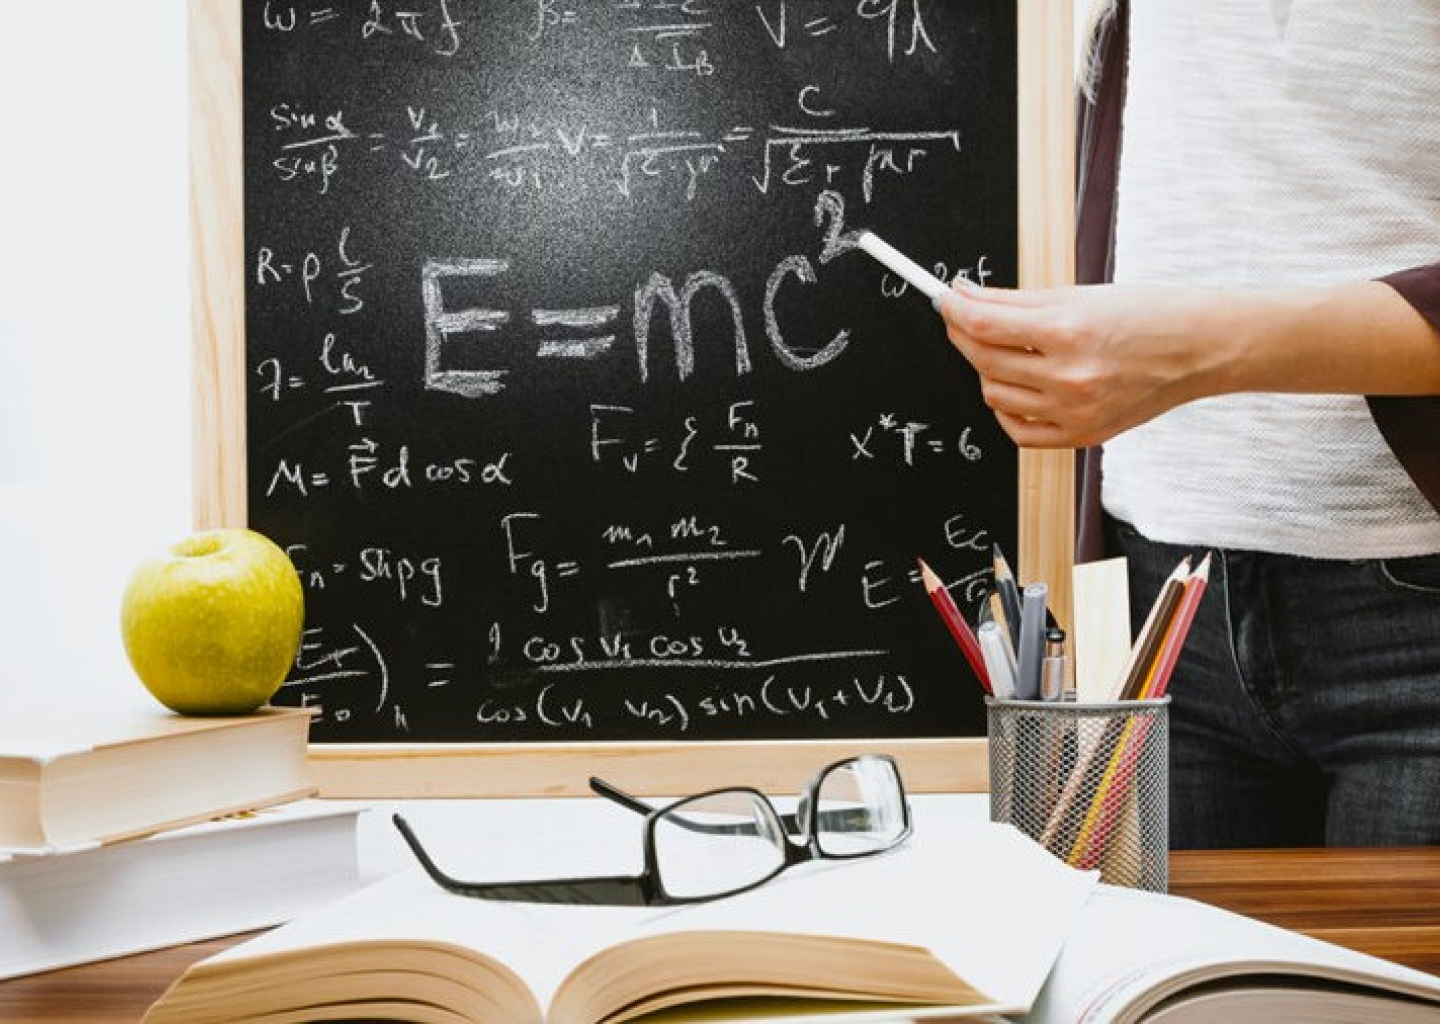 ω = 2πf β= V = qλ
sin α / sin β = v₁ / v₂ = V= 1 / √ = C / √ε r μ r
R= ρ l / S
E=mc²
ω 2πf
λ= ln₂ / T
F_v= { F_n / R
X*T=6
M= F⃗ d cos α
F_n= Shρg
F_g= m₁ m₂ / r²
E =
E₀ )
= 2 cos v₁ cos v₂ / cos(v₁ v₂) sin(v₁+v₂)